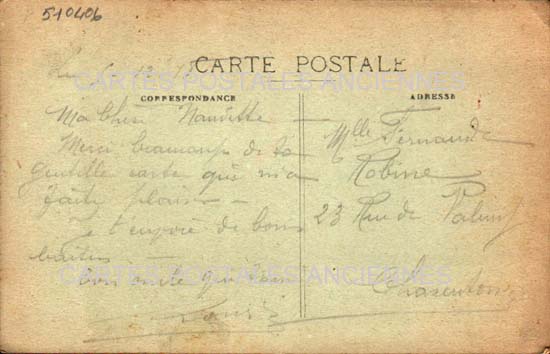 510406
CARTE POSTALE
CARTES POSTALES ANCIENNES
CORRESPONDANCE
ADRESSE
Ma Chère Nanette
Merci beaucoup de ta
gentille carte qui m'a
faite plaisir
Je t'envoie de bons
baisers
Ton amie qui
Mlle Fernande
Robine
23 Rue de
Charenton
CARTES POSTALES ANCIENNES